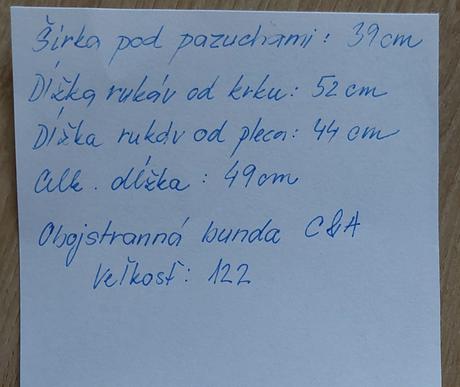 Šírka pod pazuchami: 39cm
Dĺžka rukáv od krku: 52 cm
Dĺžka rukáv od pleca: 44 cm
Celk. dĺžka: 49cm
Obojstranná bunda C&A
Veľkosť: 122